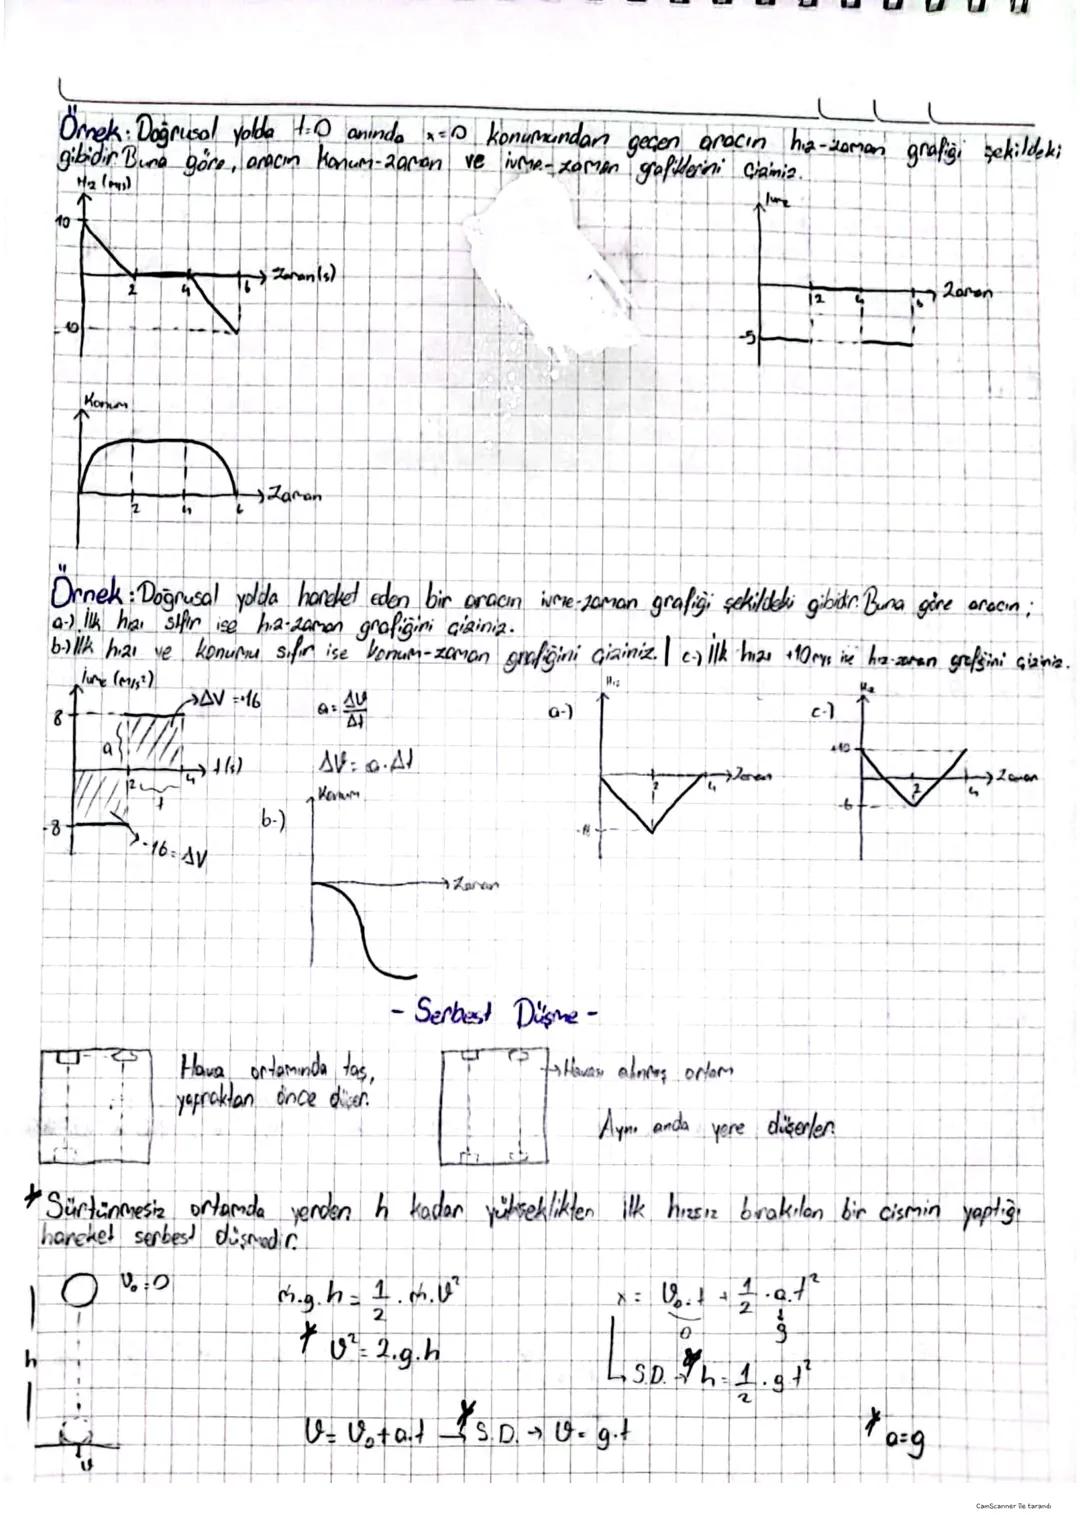 Örnek: Doğrusal yolda t=0 anında x=0 konumundan geçen aracın hız-zaman grafiği şekildeki
gibidir. Buna göre, aracın konum-zaman ve ivme-zaman grafiklerini çiziniz.
Hız (m/s)
10
2
4
6
Zaman(s)
İvme
2
4
6
Zaman
-5
Konum
2
4
6
Zaman
Örnek: Doğrusal yolda hareket eden bir aracın ivme-zaman grafiği şekildeki gibidir. Buna göre aracın;
a-) İlk hızı sıfır ise hız-zaman grafiğini çiziniz.
b-) İlk hızı ve konumu sıfır ise konum-zaman grafiğini çiziniz. | c-) İlk hızı +10 m/s ise hız-zaman grafiğini çiziniz.
İvme (m/s²)
8
ΔV = +16
a
2
4
t(s)
t
-8
-16 = ΔV
a = ΔV/Δt
ΔV = a.Δt
b-)
Konum
Zaman
a-)
Hız
2
4
Zaman
c-)
Hız
+10
2
4
Zaman
-6
- Serbest Düşme -
Hava ortamında taş,
yapraktan önce düşer.
Havası alınmış ortam
Aynı anda yere düşerler.
* Sürtünmesiz ortamda yerden h kadar yükseklikten ilk hızsız bırakılan bir cismin yaptığı
hareket serbest düşmedir.
V₀ = 0
h
v
m.g.h = 1/2 . m.V²
* V² = 2.g.h
x = V₀.t + 1/2 . a.t²
0
g
S.D. → * h = 1/2 . g.t²
V = V₀ + a.t → * S.D. → V = g.t
* a=g
CamScanner ile tarandı